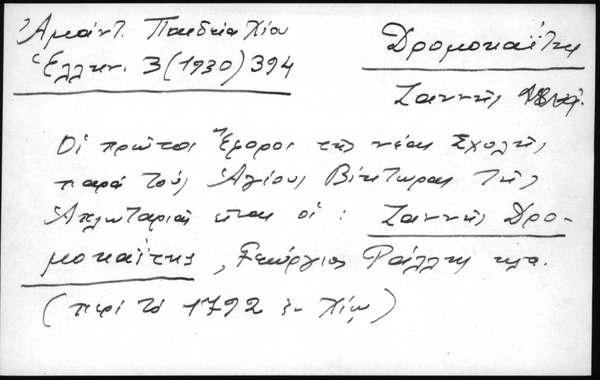 Ἀμάντ. Παιδεία Χίου
Ἑλλην. 3 (1930) 394
Δρομοκαΐτης
Ζαννῆς
Οἱ πρῶτοι Ἔφοροι τῆς νέας Σχολῆς
παρὰ τοὺς Ἁγίους Βίκτωρας τῆς
Ἀπλωταριᾶς εἶναι οἱ: Ζαννῆς Δρο-
μοκαΐτης, Γεώργιος Ράλλης κλπ.
(περὶ τὸ 1792 ἐν Χίῳ)